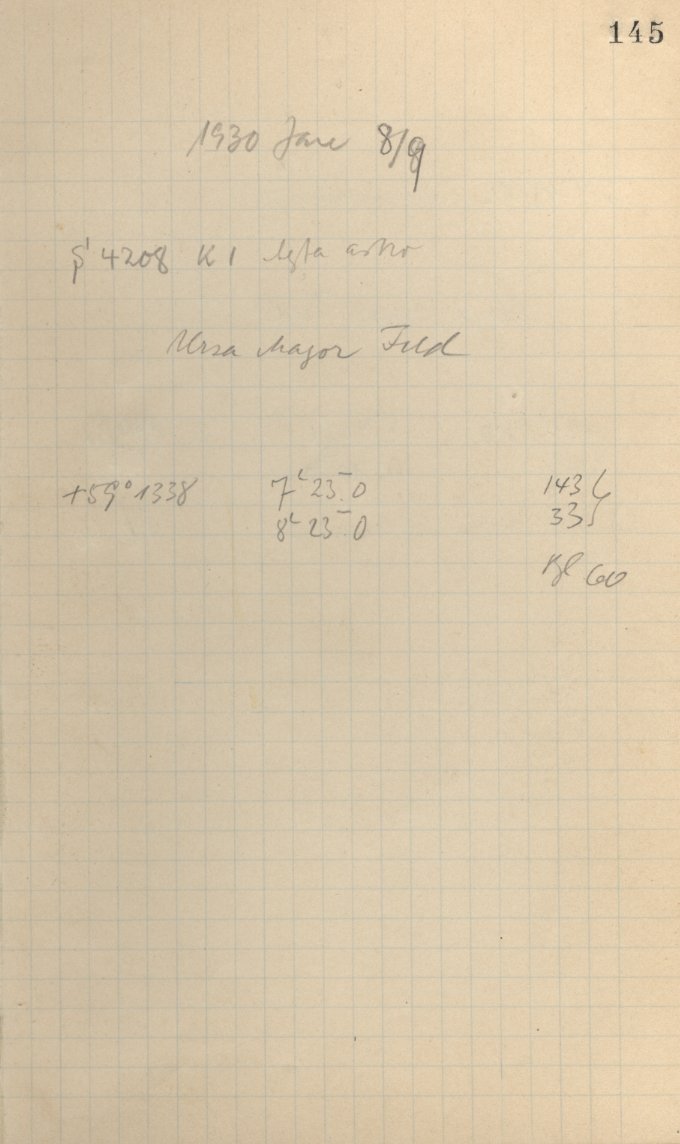 145
1930 Jan 8/9
4208 K 1 Agfa astro
Ursa Major Feld
+59° 1338 7ʰ 23ᵐ.0 143
8ʰ 23ᵐ 0 33
Bl 60